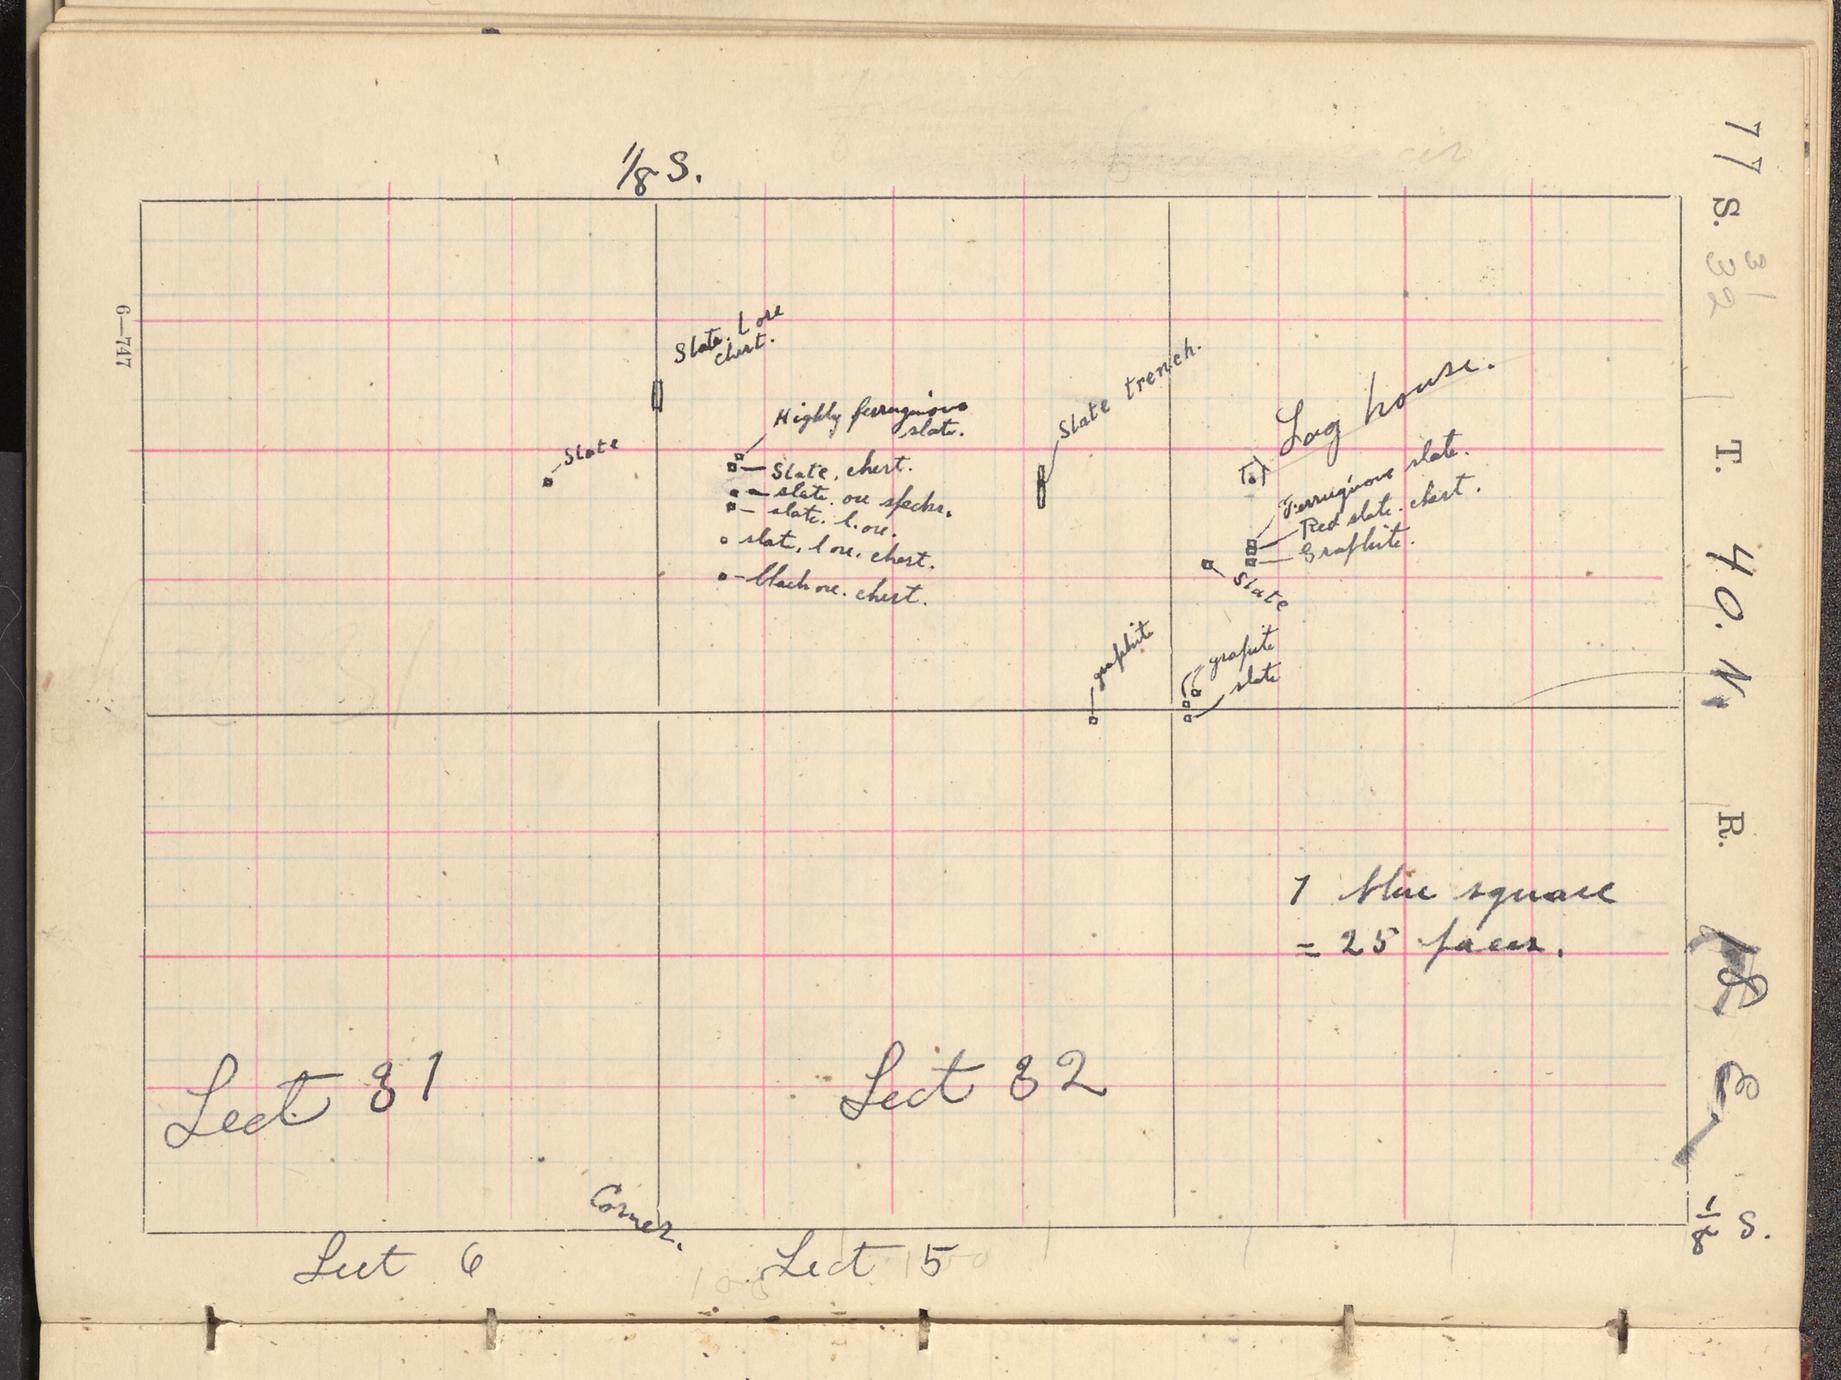 1/8 S.
77 S. 31 32 T. 40. N. R. 18 E. 1/8 S.
6—747
Slate. l ore
chert.
Slate
Highly ferruginous
slate.
Slate, chert.
slate. ore specks.
slate. l. ore.
slate, l ore. chert.
black ore. chert.
Slate trench.
Log house.
Ferruginous slate.
Red slate. chert.
Graphite.
Slate
graphite
grapite
slate
1 blue square
= 25 paces.
Sect 31
Sect 32
Corner.
Sect 6
Sect 5